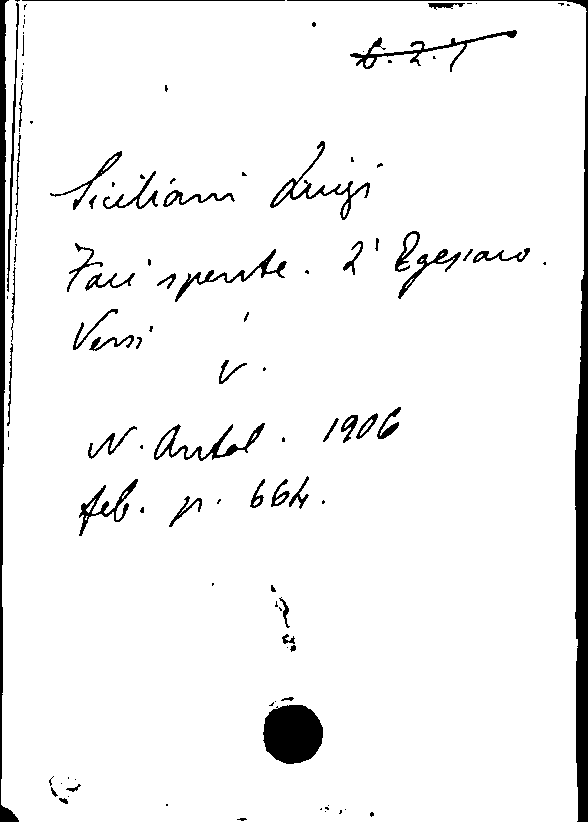 6.2.7
Siciliani Luigi
Faci spente. L' Egesiaco.
Versi
V.
N. Antol. 1906
feb. p. 664.